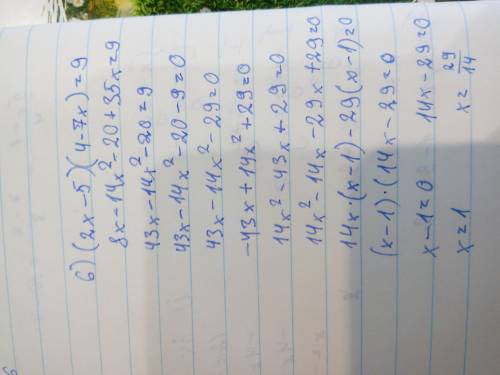 6) (2x-5)(4-7x)=9
8x-14x²-20+35x=9
43x-14x²-20=9
43x-14x²-20-9=0
43x-14x²-29=0
-43x+14x²+29=0
14x²-43x+29=0
14x²-14x-29x+29=0
14x·(x-1)-29(x-1)=0
(x-1)·(14x-29=0
x-1=0 14x-29=0
x=1 x=29/14